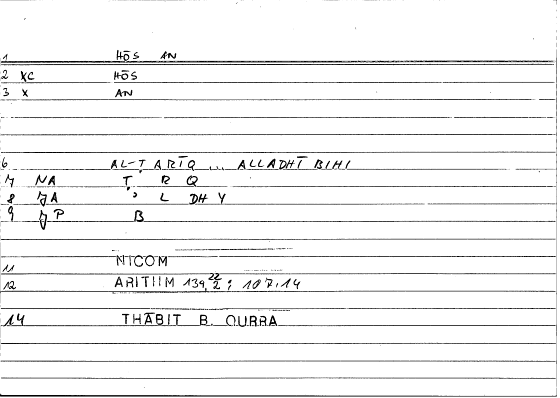 1 HŌS AN
2 XC HŌS
3 X AN
6 AL-ṬARĪQ ... ALLADHĪ BIHI
7 NA Ṭ R Q
8 JA ʾ L DH Y
9 JP B
11 NICOM
12 ARITHM 139, 22/2 ; 107.14
14 THĀBIT B. QURRA